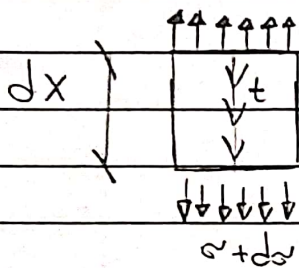 dx
t
σ+dσ